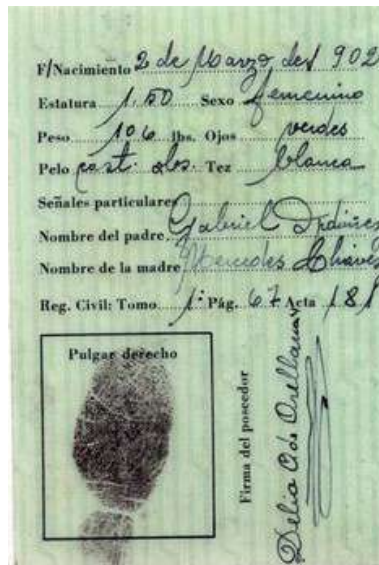 F/Nacimiento 2 de Marzo del 902
Estatura 1.50 Sexo femenino
Peso 106 lbs. Ojos verdes
Pelo cast. obs. Tez blanca
Señales particulares
Nombre del padre Gabriel Ordóñez
Nombre de la madre Mercedes Cháves
Reg. Civil: Tomo 1º Pág. 67 Acta 181
Pulgar derecho
Firma del poseedor
Delia O. de Orellana